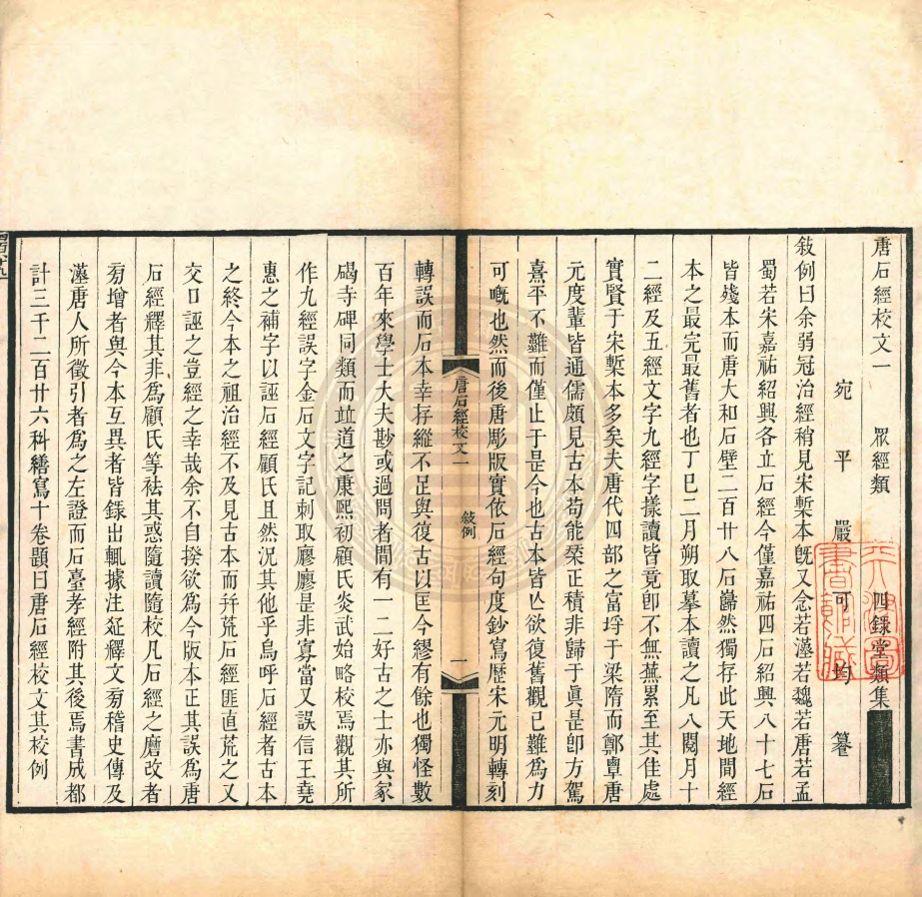 唐石經校文一　眾經類　四錄堂類集
宛平嚴可均篹
敍例曰余弱冠治經稍見宋槧本旣又念若漢若魏若唐若孟
蜀若宋嘉祐紹興各立石經今僅嘉祐四石紹興八十七石
皆殘本而唐大和石壁二百廿八石巋然獨存此天地閒經
本之最完最舊者也丁巳二月朔取摹本讀之凡八閱月十
二經及五經文字九經字樣讀皆竟卽不無蕪累至其佳處
實賢于宋槧本多矣夫唐代四部之富埒于梁隋而鄭覃唐
元度輩皆通儒頗見古本苟能棐正積非歸于眞是卽方駕
熹平不難而僅止于是今也古本皆亾欲復舊觀已難爲力
可嘅也然而後唐彫版實依石經句度鈔寫歷宋元明轉刻
唐石經校文一　敍例　一
轉誤而石本幸存縱不足與復古以匡今繆有餘也獨怪數
百年來學士大夫尟或過問者閒有一二好古之士亦與冢
碣寺碑同類而竝道之康熙初顧氏炎武始略校焉觀其所
作九經誤字金石文字記刺取廖廖是非寡當又誤信王堯
惠之補字以誣石經顧氏且然況其他乎烏呼石經者古本
之終今本之祖治經不及見古本而幷荒石經匪直荒之又
交口誣之豈經之幸哉余不自揆欲爲今版本正其誤爲唐
石經釋其非爲顧氏等袪其惑隨讀隨校凡石經之磨改者
㫄增者與今本互異者皆錄出輒據注疏釋文㫄稽史傳及
漢唐人所徵引者爲之左證而石臺孝經附其後焉書成都
計三千二百廿六科繕寫十卷題曰唐石經校文其校例